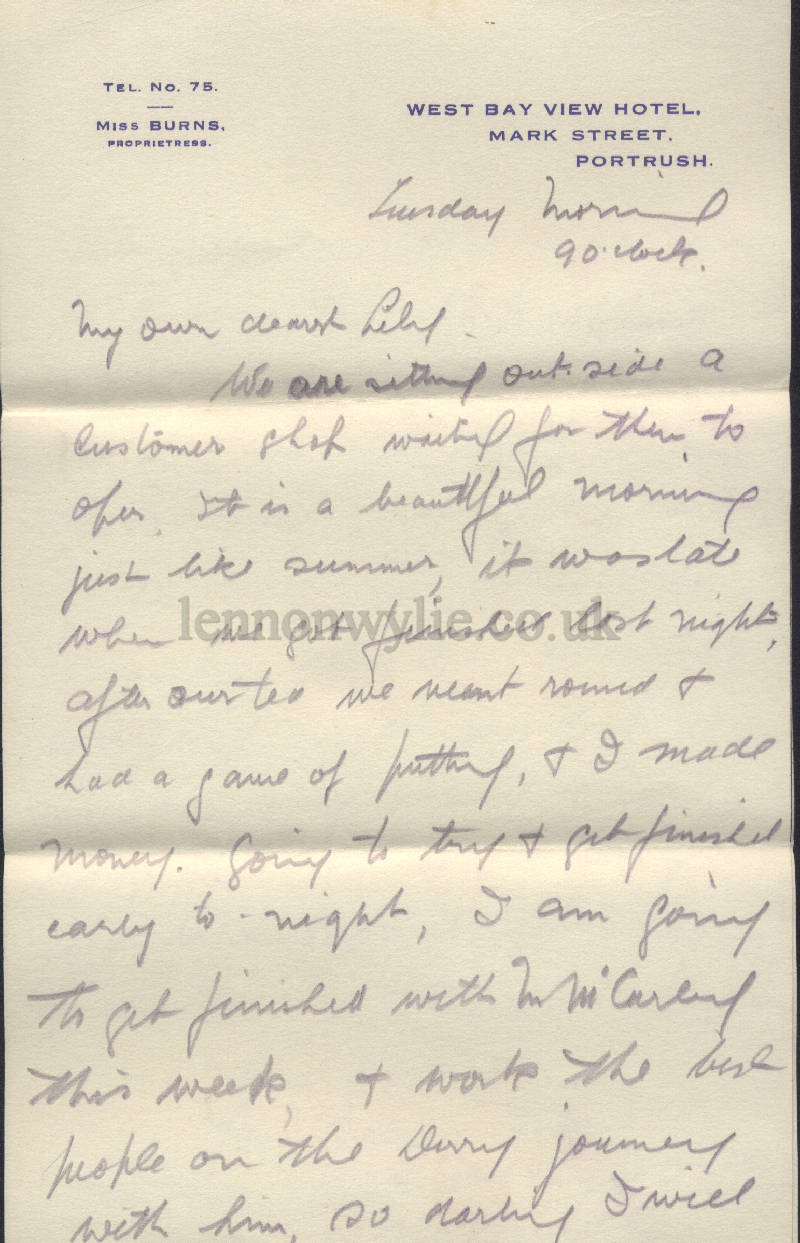 TEL. NO. 75.
MISS BURNS,
PROPRIETRESS.
WEST BAY VIEW HOTEL,
MARK STREET,
PORTRUSH.
Tuesday Morning
9 o'clock.
My own dearest Lily
We are sitting out-side a
customer shop waiting for them to
open, it is a beautiful morning
just like summer, it was late
when we got finished last night,
after our tea we went round &
had a game of putting, & I made
money. Going to try & get finished
early to-night, I am going
to get finished with Mr
this week, & work the best
people on the Derry journey
with him, so darling I will
lennonwylie.co.uk